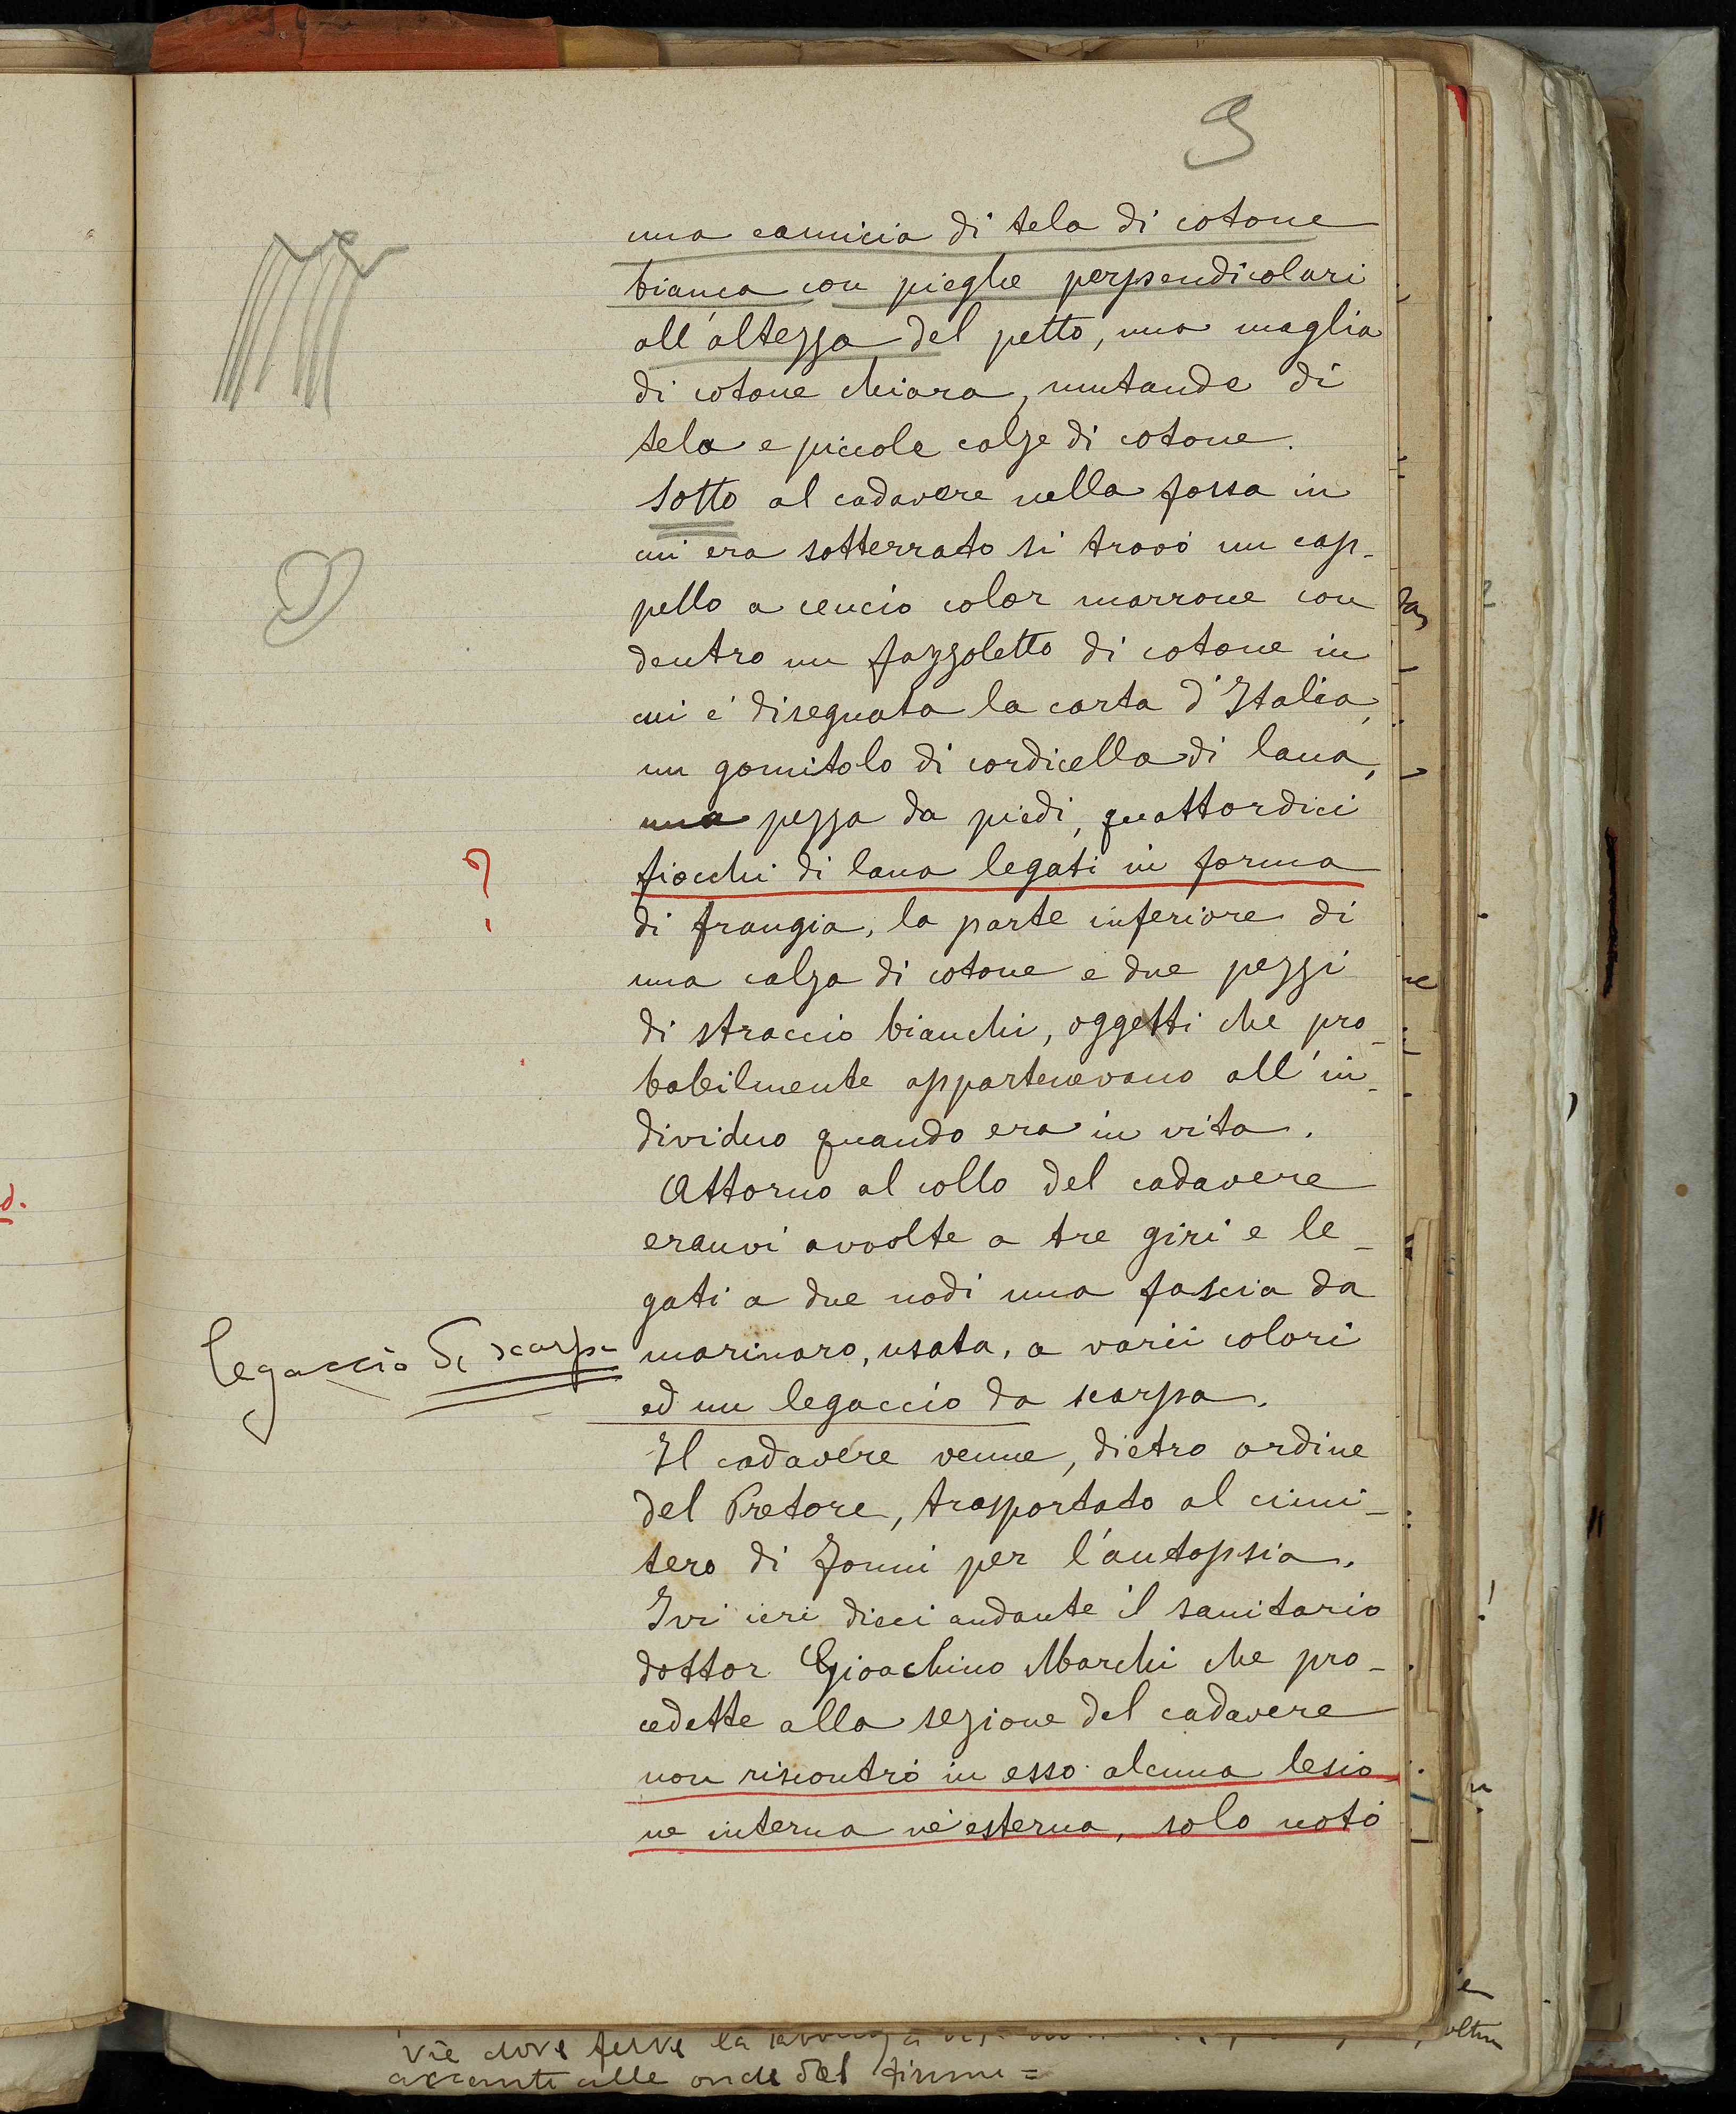 9
una camicia di tela di cotone
bianca con pieghe perpendicolari
all'altezza del petto, una maglia
di cotone chiara, mutande di
tela e piccole calze di cotone.
Sotto al cadavere nella fossa in
cui era sotterrato si trovò un cap-
pello a cencio color marrone con
dentro un fazzoletto di cotone in
cui è disegnata la carta d'Italia,
un gomitolo di cordicella di lana,
una pezza da piedi, quattordici
?
fiocchi di lana legati in forma
di frangia, la parte inferiore di
una calza di cotone e due pezzi
di straccio bianchi, oggetti che pro-
babilmente appartenevano all'in-
dividuo quando era in vita.
Attorno al collo del cadavere
eranvi avvolte a tre giri e le-
gati a due nodi una fascia da
legaccio di scarpa
marinaro, usata, a varii colori
ed un legaccio da scarpa.
Il cadavere venne, dietro ordine
del Pretore, trasportato al cimi-
tero di Jonni per l'autopsia.
Ivi ieri dieci andante il sanitario
dottor Gioachino Marchi che pro-
cedette alla sezione del cadavere
non riscontrò in esso alcuna lesio-
ne interna nè esterna, solo notò
vie dove ferve la
alle onde del fiume =